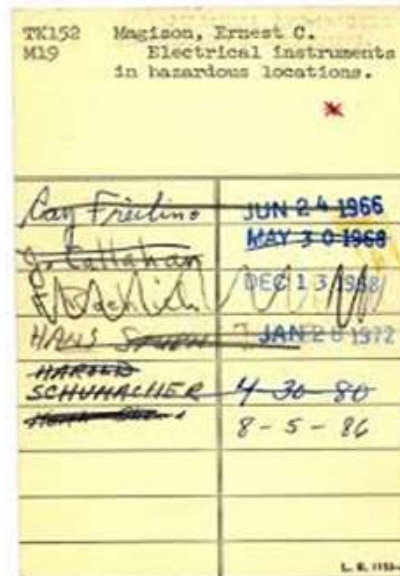 TK152 Magison, Ernest C.
M19 Electrical instruments
in hazardous locations.
Ray JUN 24 1966
J. Callahan MAY 30 1968
DEC 13 1968
HANS JAN 28 1972
HAROLD
SCHUMACHER 4-30-80
8-5-86